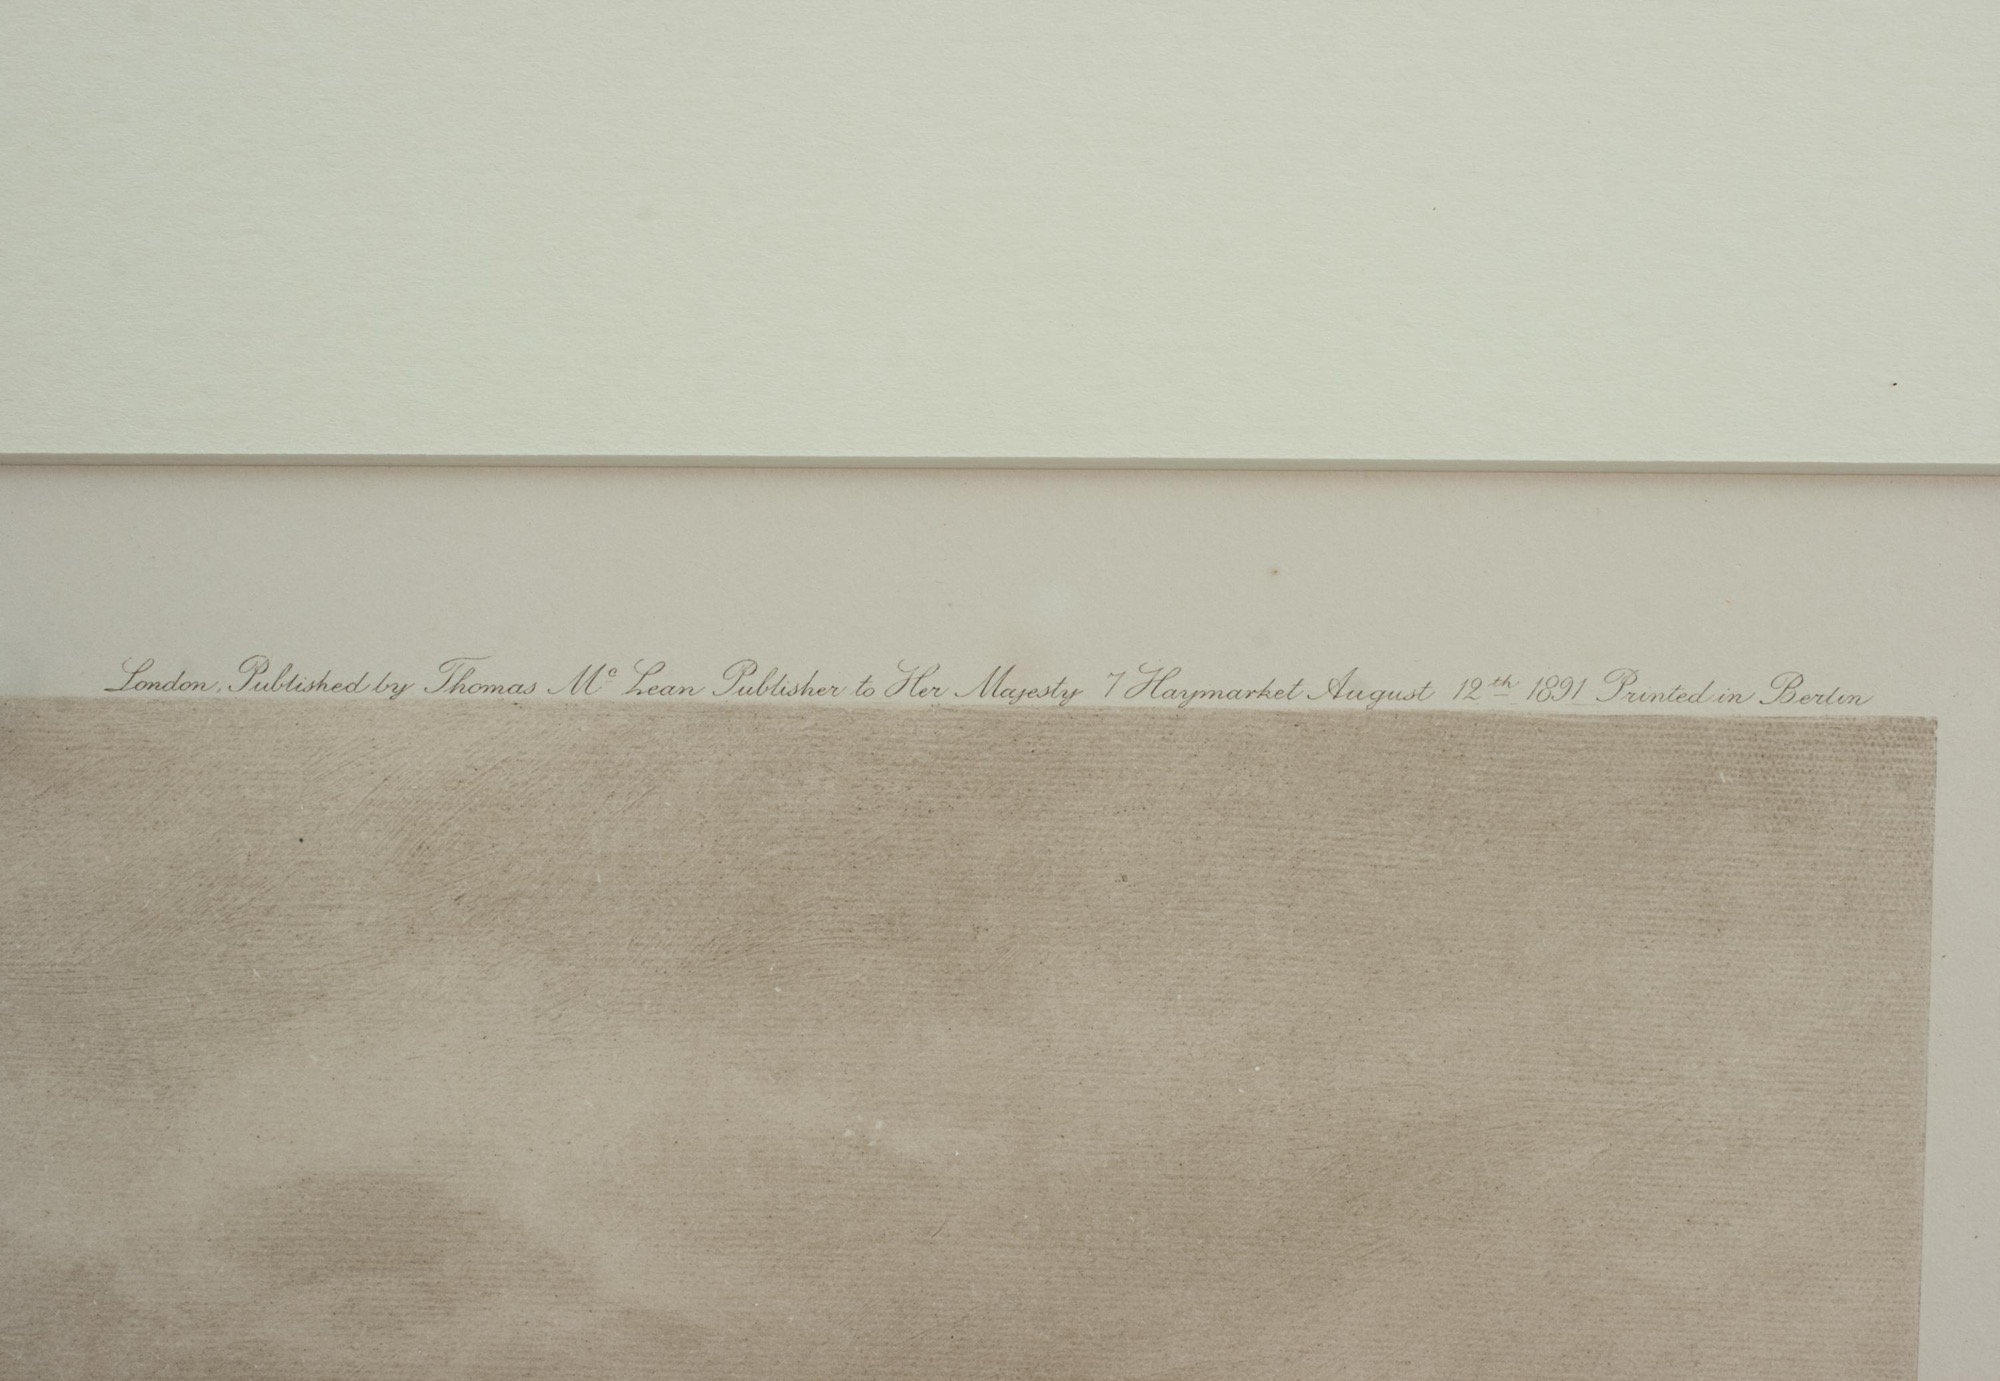 London, Published by Thomas Mc Lean Publisher to Her Majesty 7 Haymarket August 12th 1891 Printed in Berlin